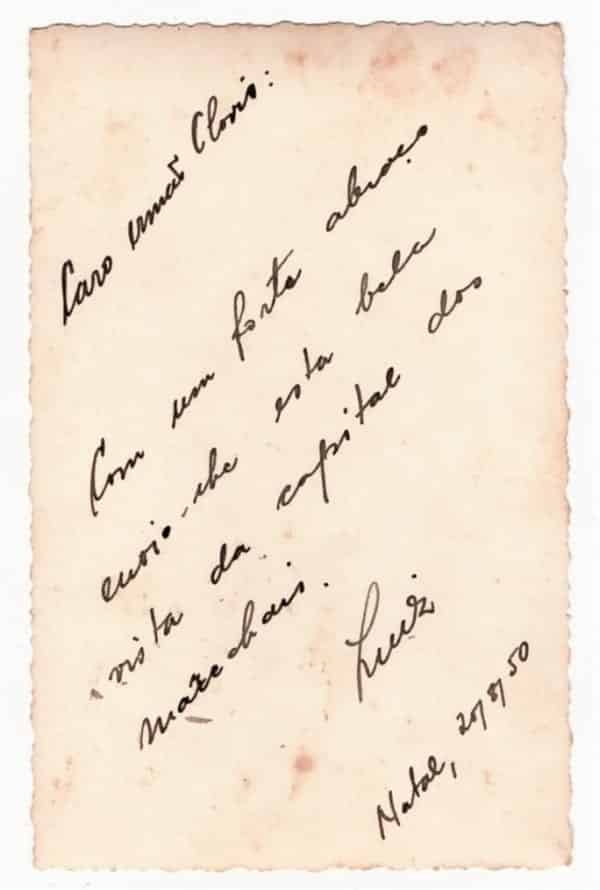 Caro irmão Clovis:
Com um forte abraço
envio-lhe esta bela
vista da capital dos
marechais.
Luiz
Natal, 20/8/50